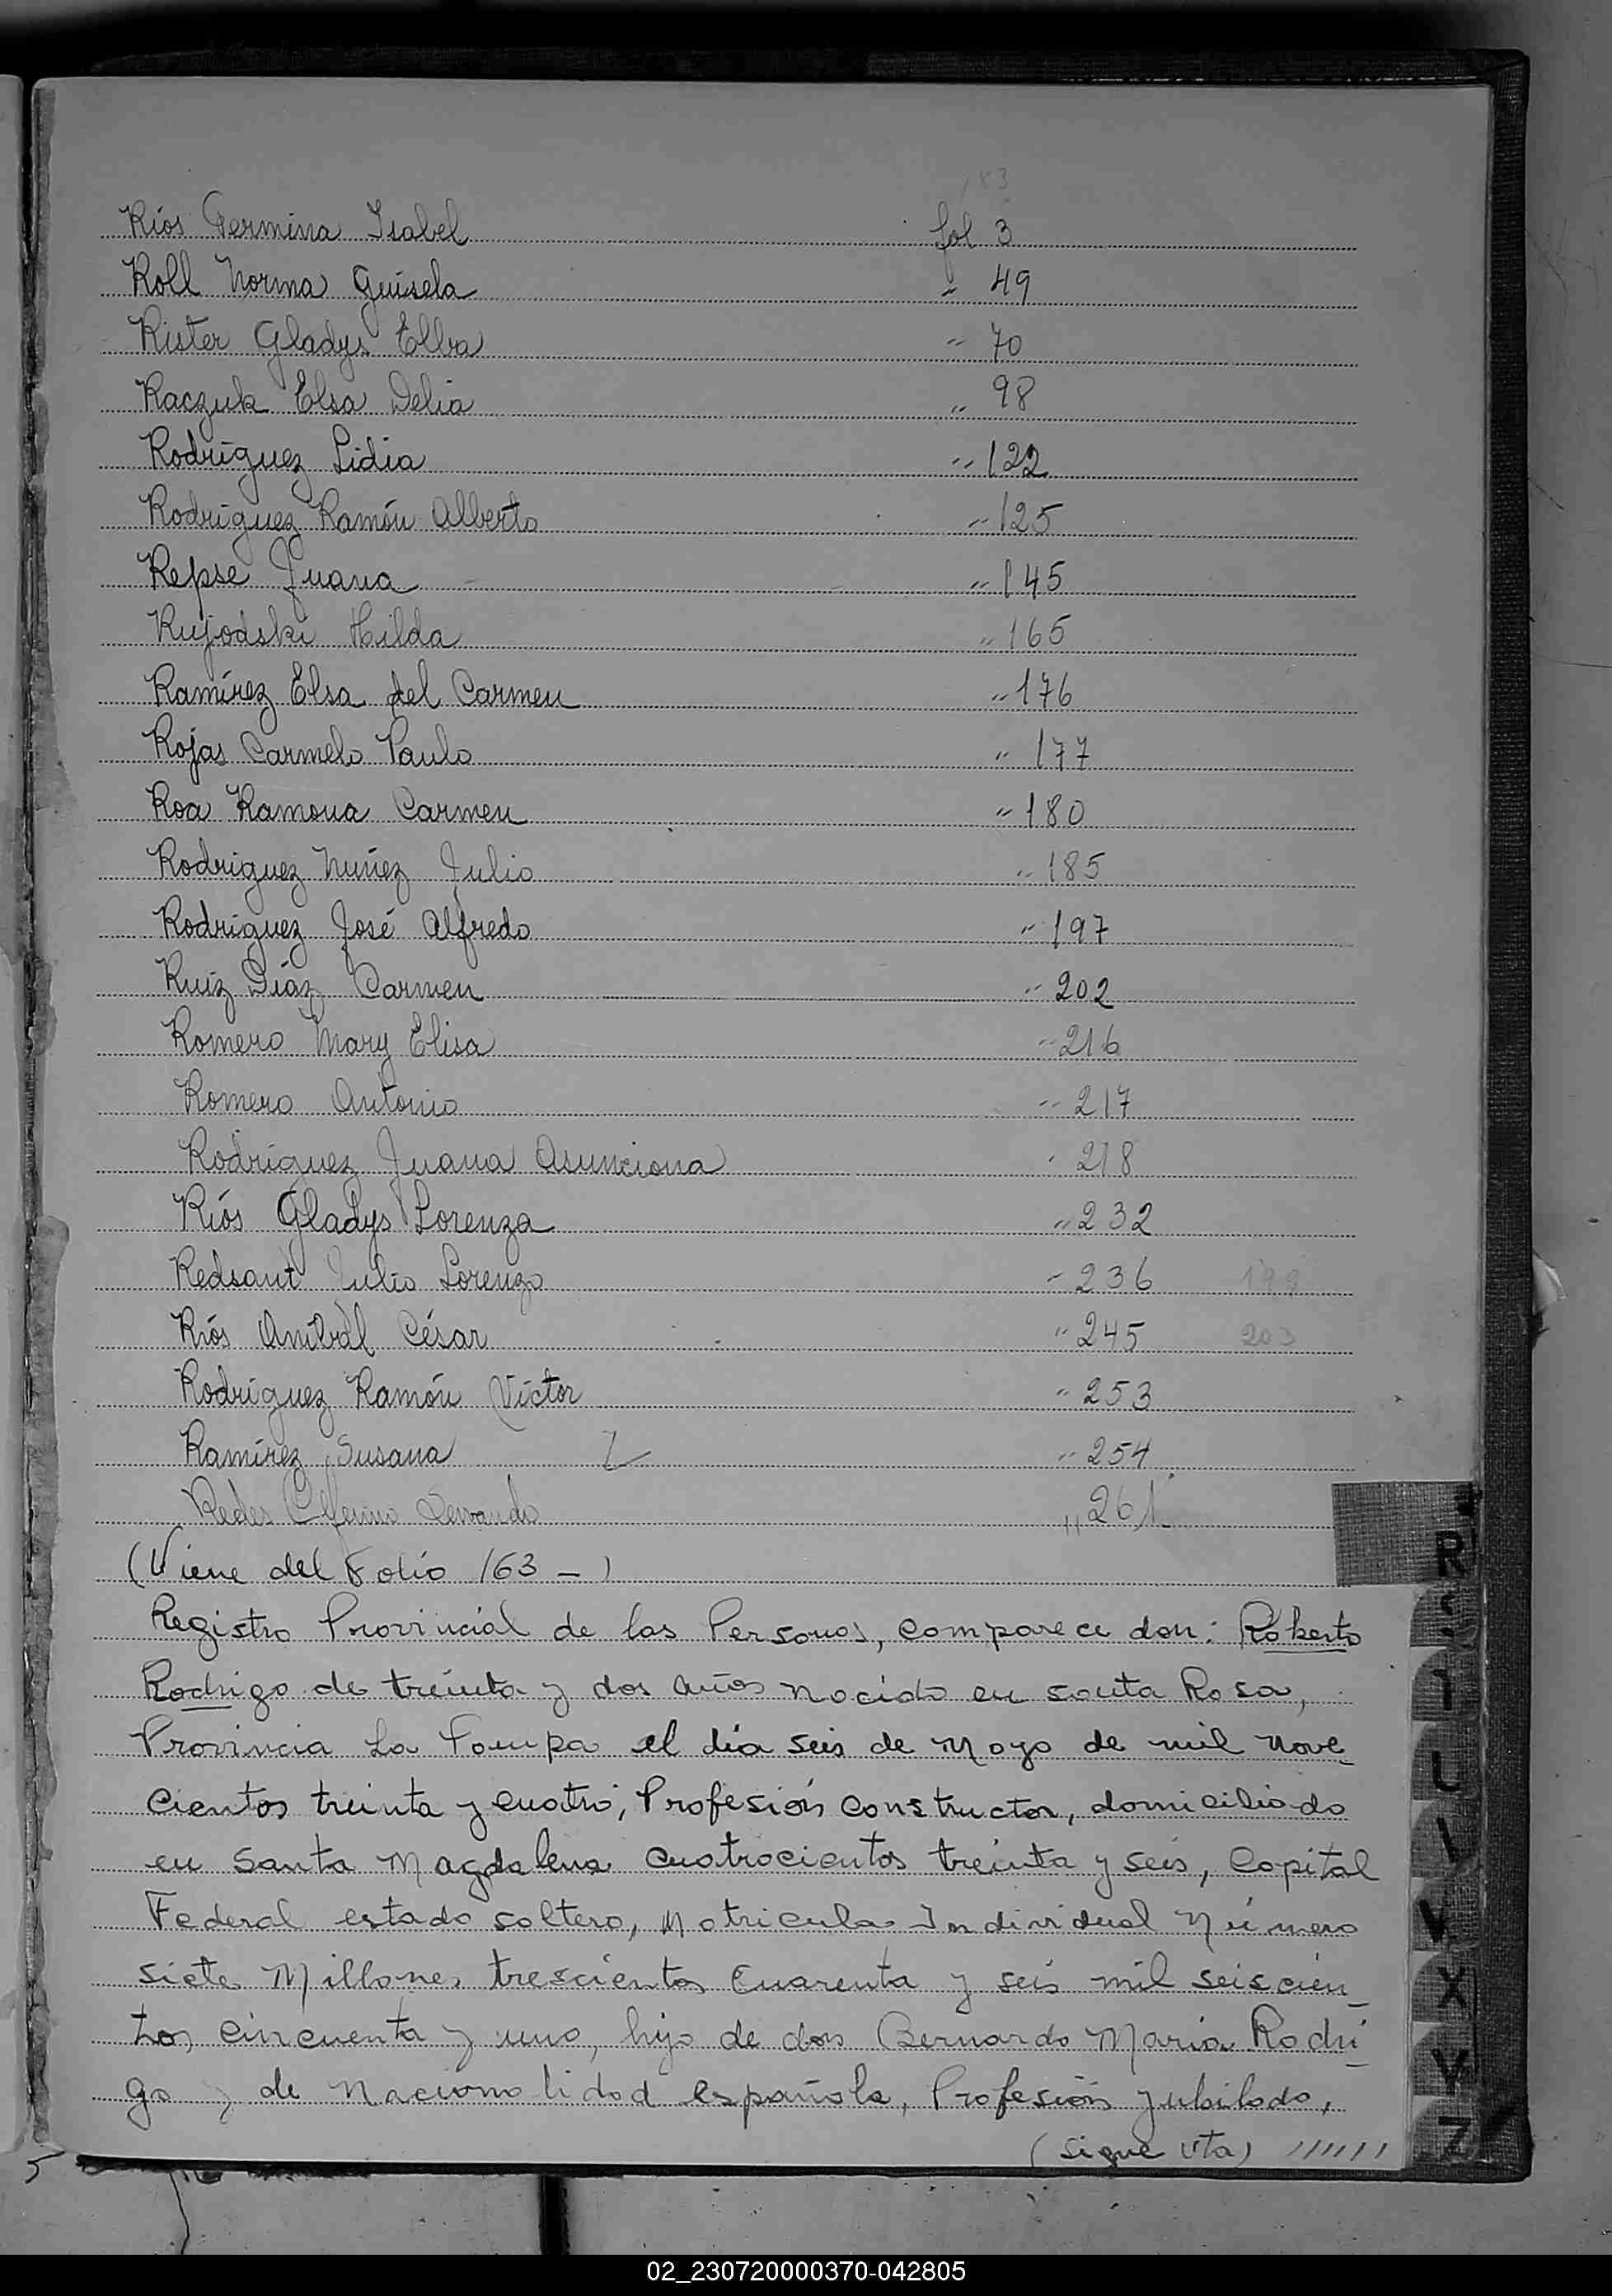 183
Ríos Germina Isabel fol 3
Roll Norma Guisela " 49
Rister Gladys Elba " 70
Raczuk Elsa Delia " 98
Rodríguez Lidia " 122
Rodríguez Ramón Alberto " 125
Repse Juana " 145
Rujodski Hilda " 165
Ramírez Elsa del Carmen " 176
Rojas Carmelo Paulo " 177
Roa Ramona Carmen " 180
Rodriguez Nuñez Julio " 185
Rodriguez José Alfredo " 197
Ruiz Diaz Carmen " 202
Romero Mary Elisa " 216
Romero Antonio " 217
Rodríguez Juana Asunciona " 218
Ríos Gladys Lorenza " 232
Redsant Julio Lorenzo " 236 199
Ríos Aníbal César " 245 203
Rodríguez Ramón Víctor " 253
Ramírez Susana " 254
Redes Ceferino Servando " 261
(Viene del Folio 163 - )
Registro Provincial de las Personas, comparece don: Roberto
Rodrigo de treinta y dos años nacido en santa Rosa,
Provincia La Pampa el día seis de Mayo de mil nove
cientos treinta y cuatro, Profesión constructor, domiciliado
en Santa Magdalena cuatrocientos treinta y seis, Capital
Federal estado soltero, Matricula Individual Número
siete Millones trescientos cuarenta y seis mil seiscien
tos cincuenta y uno, hijo de don Bernardo María Rodri
go y de Nacionalidad española, Profesión jubilado,
(sigue vta) //////
R
S
T
U
V
X
Y
Z
02_230720000370-042805